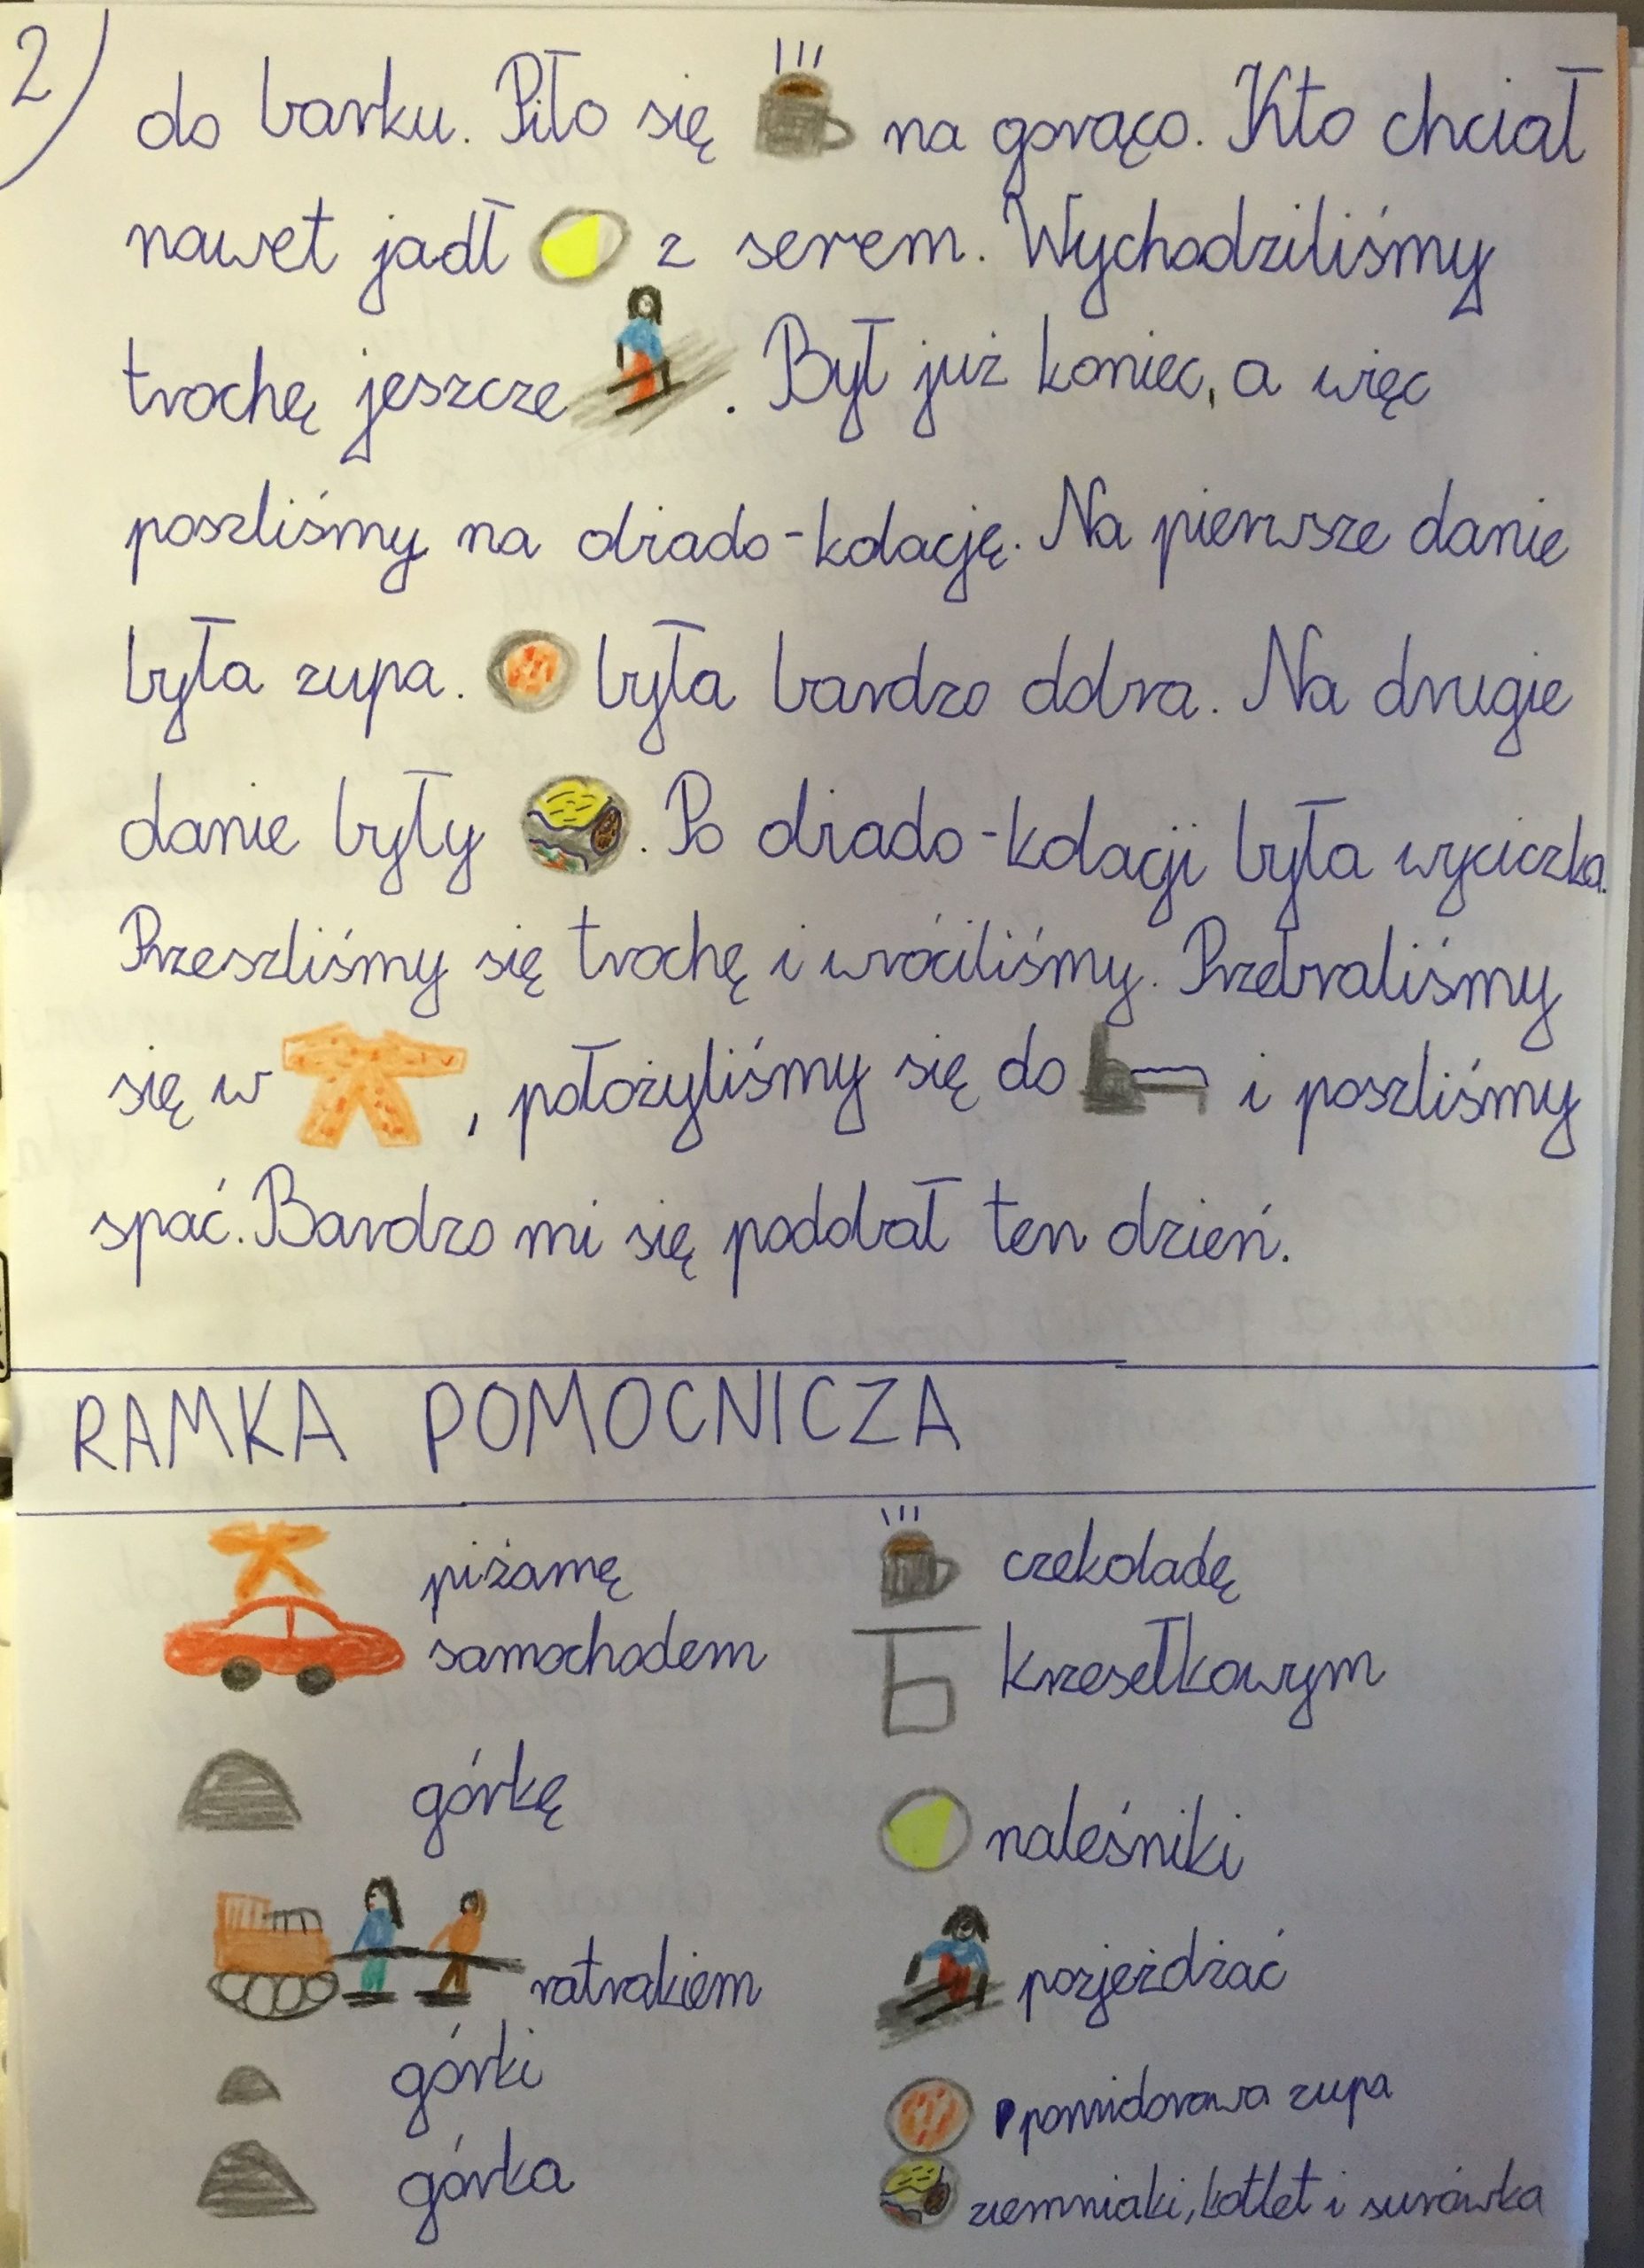 2)
do barku. Piło się na gorąco. Kto chciał
nawet jadł z serem. Wychodziliśmy
trochę jeszcze . Był już koniec, a więc
poszliśmy na obiado-kolację. Na pierwsze danie
była zupa. była bardzo dobra. Na drugie
danie były . Po obiado-kolacji była wyciczka.
Przeszliśmy się trochę i wróciliśmy. Przebraliśmy
się w , położyliśmy się do i poszliśmy
spać. Bardzo mi się podobał ten dzień.
RAMKA POMOCNICZA
piżamę
samochodem
górkę
ratrakiem
górki
górka
czekoladę
krzesełkowym
naleśniki
pozjeżdżać
pomidorowa zupa
ziemniaki, kotlet i surówka